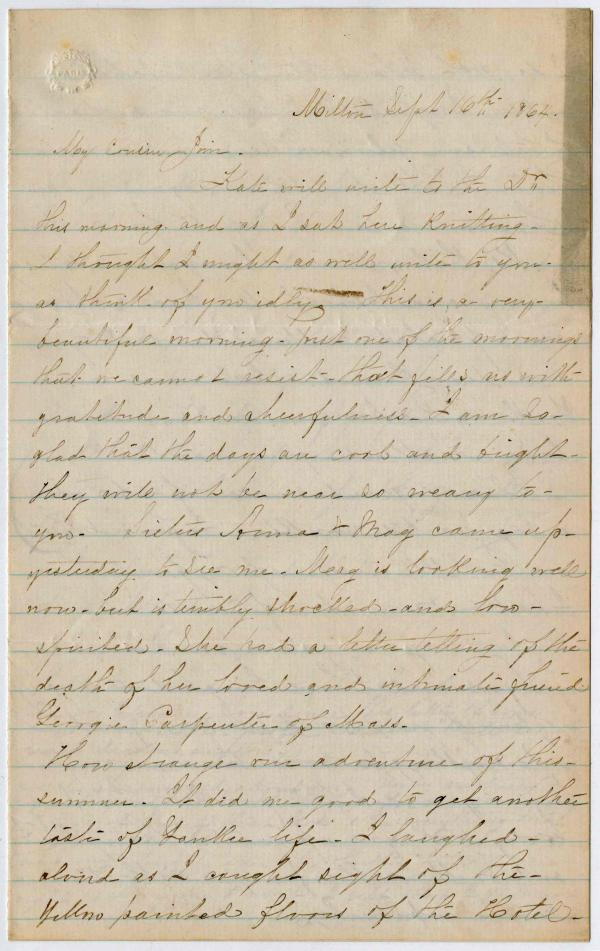 PARIS
Milton Sept 16th 1864.
My Cousin Jim.
Kate will write to the Dr
this morning and as I sat here Knitting -
I thought I might as well write to you -
as think of you idly. This is a very
beautiful morning - just one of the mornings
that we cannot resist - that fills us with
gratitude and cheerfulness - I am so
glad that the days are cool and bright -
they will not be near so weary to -
you - Sisters Anna & Mag came up -
yesterday to see me - Mag is looking well
now - but is terribly shocked - and low -
spirited - She had a letter telling of the
death of her loved and intimate friend
Georgie Carpenter of Mass.
How strange our adventure of this -
summer - It did me good to get another
taste of Yankee life - I laughed -
aloud as I caught sight of the -
Yellow painted floors of the Hotel -